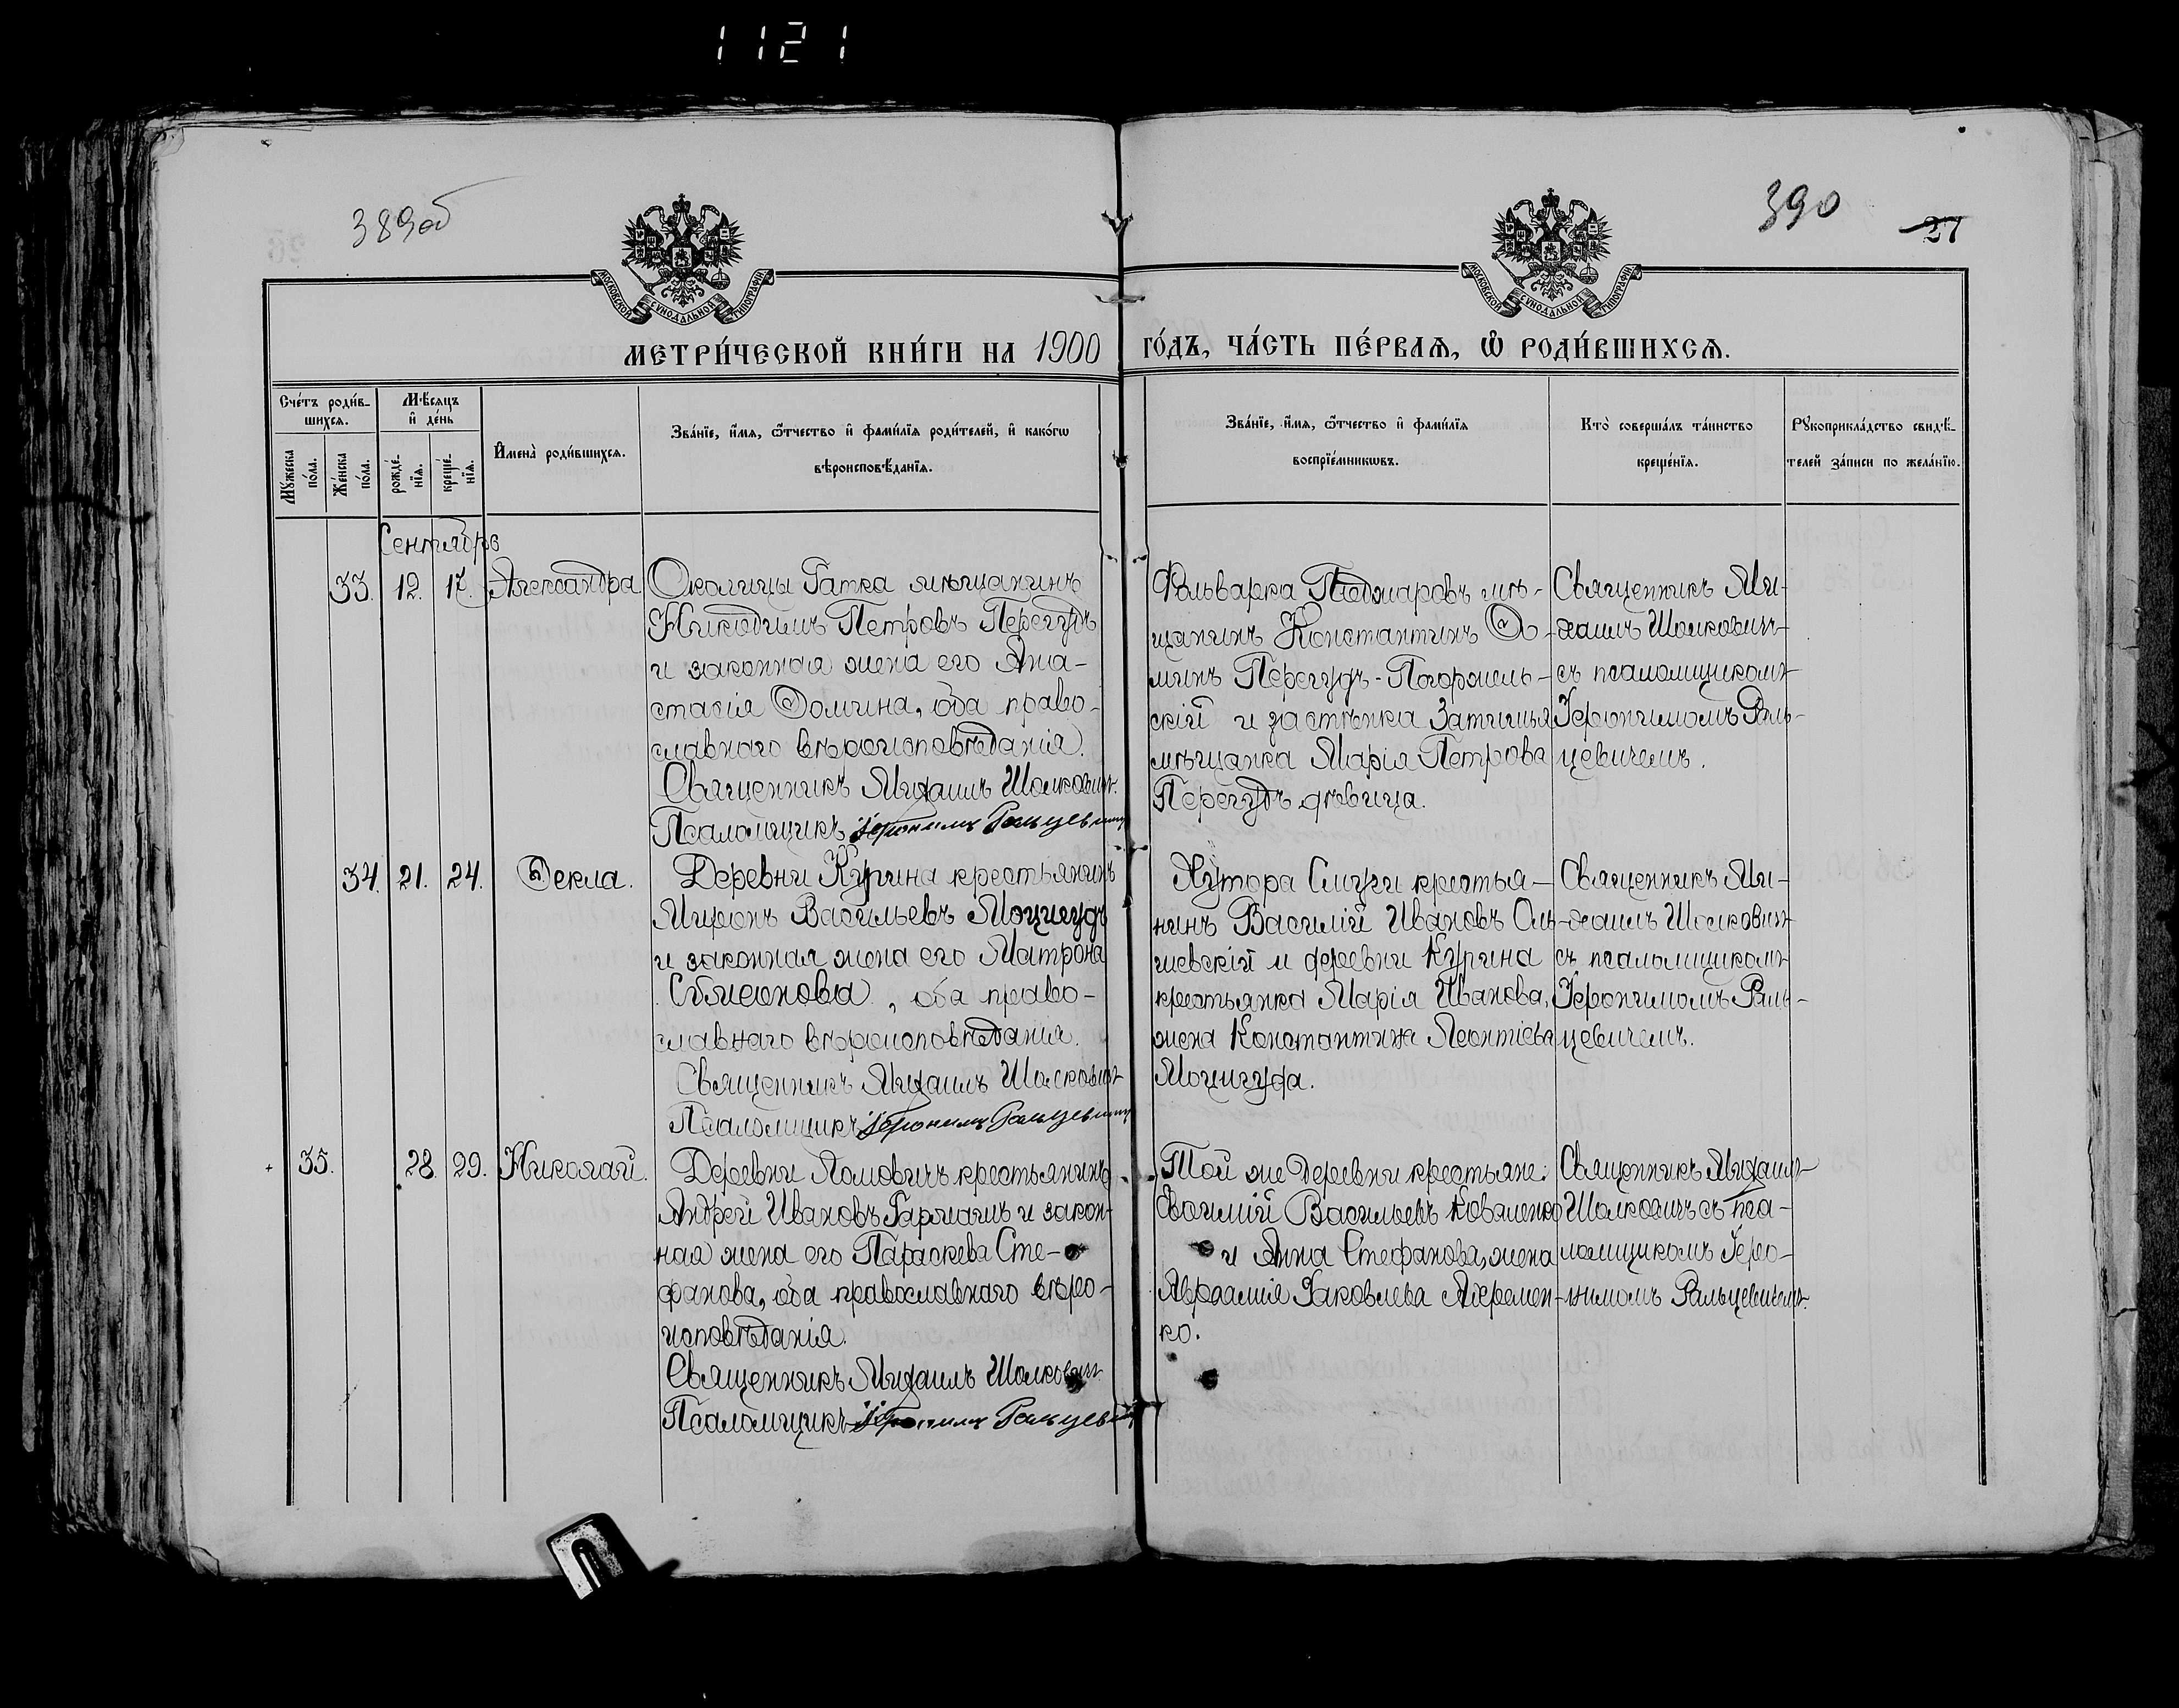 1121
389об
390
27
МОСКОВСКОЙ СУНОДАЛЬНОЙ ТИПОГРАФІИ
МОСКОВСКОЙ СУНОДАЛЬНОЙ ТИПОГРАФІИ
МЕТРИ́ЧЕСКОЙ КНИ́ГИ НА 1900 ГО́ДЪ, ЧА́СТЬ ПЕ́РВАѦ, Ѡ҆ РОДИ́ВШИХСѦ.
Сче́тъ роди́в-
шихсѧ.
Мꙋ́жеска
по́ла.
Же́нска
по́ла.
Мѣ́сѧцъ
и҆ де́нь
рожде́-
нїѧ.
креще́-
нїѧ.
И҆мена̀ роди́вшихсѧ.
Зва́нїе, и҆́мѧ, ѻ҆́тчество и҆ фами́лїѧ роди́телей, и҆ како́гѡ
вѣроисповѣ́данїѧ.
Зва́нїе, и҆́мѧ, ѻ҆́тчество и҆ фами́лїѧ
воспрїе́мникѡвъ.
Кто̀ соверша́лъ та́инство
креще́нїѧ.
Рꙋкоприкла́дство свидѣ́-
телей за́писи по жела́нїю.
Сентябрь
33. 12. 17. Александра
Околицы Гатка мѣщанинъ
Никодимъ Петровъ Перегудъ
и законная жена его Ана-
стасія Ѳомина, оба право-
славнаго вѣроисповѣданія.
Священникъ Михаилъ Шолковичъ
Псаломщикъ Іеронимъ Ральцевичъ
Фольварка мѣ-
щанинъ Константинъ Ѳо-
минъ Перегудъ-Погорѣль-
скій и застѣнка Затишья
мѣщанка Марія Петрова
Перегудъ дѣвица.
Священникъ Ми-
хаилъ Шолковичъ
съ псаломщикомъ
Іеронимомъ Раль-
цевичемъ.
34. 21. 24. Ѳекла.
Деревни Курина крестьянинъ
Миронъ Васильевъ Моцигудъ
и законная жена его Матрона
Сѵмеонова, оба право-
славнаго вѣроисповѣданія.
Священникъ Михаилъ Шолковичъ
Псаломщикъ Іеронимъ Ральцевичъ
Хутора крестья-
нинъ Василій Ивановъ Оль-
шевскій и деревни Курина
крестьянка Марія Иванова,
жена Константина Леонтіева
Моцигуда.
Священникъ Ми-
хаилъ Шолковичъ
съ псаломщикомъ
Іеронимомъ Раль-
цевичемъ.
35. 28. 29. Николай.
Деревни Ломовичъ крестьянинъ
Андрей Ивановъ Гармашъ и закон-
ная жена его Параскева Сте-
фанова, оба православнаго вѣро-
исповѣданія.
Священникъ Михаилъ Шолковичъ
Псаломщикъ Іеронимъ Ральцевичъ
Той же деревни крестьяне:
Васильевъ Коваленко
и Анна Стефанова, жена
Авраамія Іаковлева Ахремен-
ко.
Священникъ Михаилъ
Шолковичъ съ пса-
ломщикомъ Іеро-
нимомъ Ральцевичемъ.